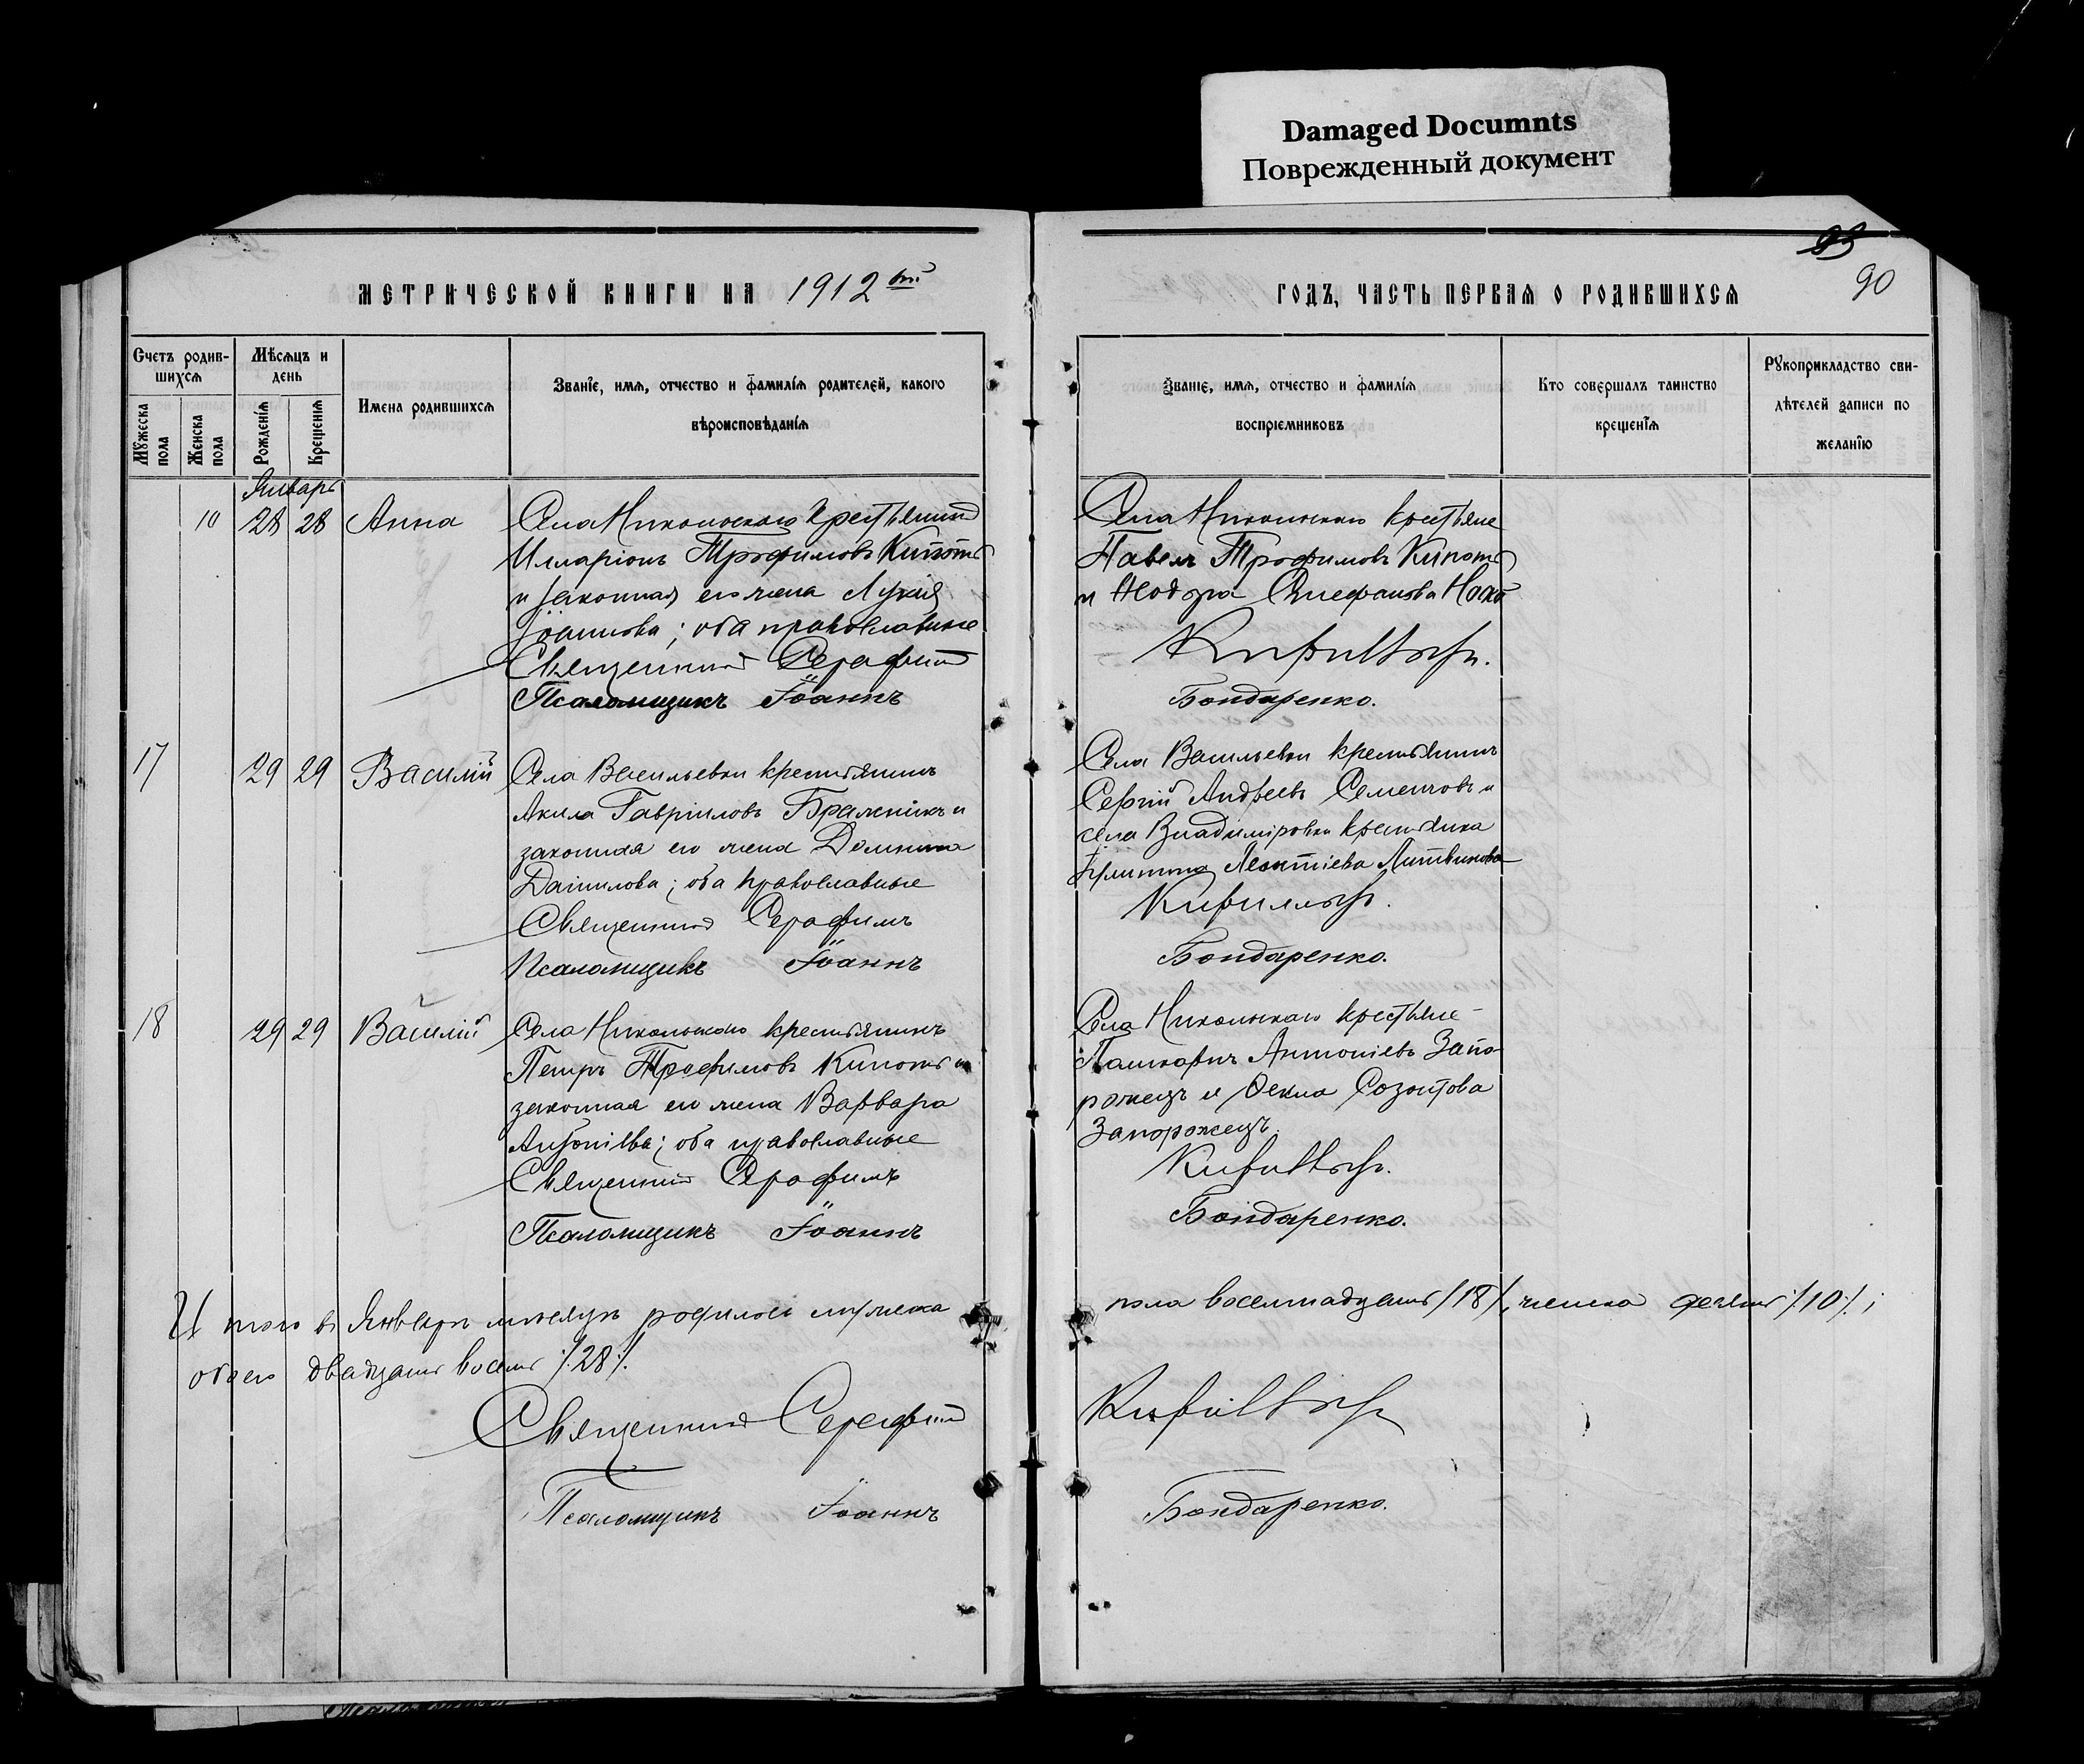 Damaged Documnts
Поврежденный документ
93
90
МЕТРИЧЕСКОЙ КНИГИ НА 1912 ый
ГОДЪ, ЧАСТЬ ПЕРВАЯ О РОДИВШИХСЯ
Счетъ родив-
шихся
Мѣсяцъ и
день
Имена родившихся
Званїе, имя, отчество и фамилїя родителей, какого
вѣроисповѣданїя
Мужеска
пола
Женска
пола
Рожденїя
Крещенїя
Званїе, имя, отчество и фамилїя
воспрїемниковъ
Кто совершалъ таинство
крещенїя
Рукоприкладство сви-
дѣтелей записи по
желанїю
Январь
10 28 28 Анна
Села Никольскаго крестьянинъ
Илларіонъ Трофимовъ Кипоть
и законная его жена Лукія
Іоаннова; оба православные
Священникъ Серафимъ
Псаломщикъ Іоаннъ
Села Никольскаго крестьяне
Павелъ Трофимовъ Кипоть
и Стефанова
Бондаренко.
17 29 29 Василій
Села Васильевки крестьянинъ
Акила Гавріиловъ и
законная его жена Домника
Даніилова; оба православные
Священникъ Серафимъ
Псаломщикъ Іоаннъ
Села Васильевки крестьянинъ
Сергій Андреевъ Семенчовъ и
села Владиміровки крестьянка
Леонтіева Литвинова
Бондаренко.
18 29 29 Василій
Села Никольскаго крестьянинъ
Петръ Трофимовъ Кипоть и
законная его жена Варвара
Антоніева; оба православные
Священникъ Серафимъ
Псаломщикъ Іоаннъ
Села Никольскаго крестьяне
Антоніевъ Запо-
рожецъ и Ѳекла Созонтова
Запорожецъ.
Бондаренко.
Итого въ Январѣ мѣсяцѣ родилось мужеска
пола восемнадцать /18/, женска десять /10/;
обоего двадцать восемь /28/.
Священникъ Серафимъ
Псаломщикъ Іоаннъ
Бондаренко.